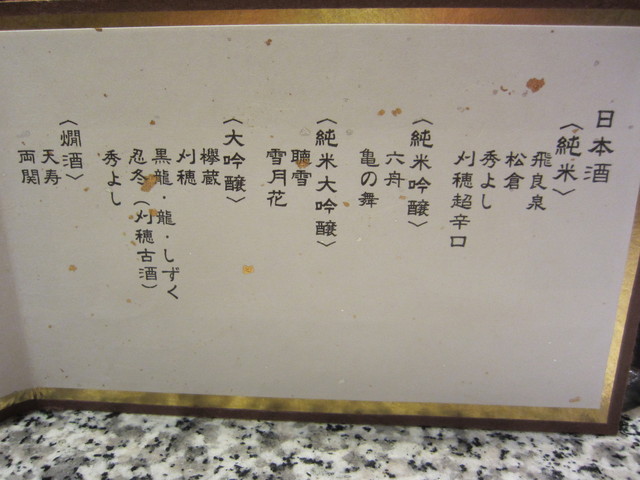 日本酒
〈純米〉
飛良泉
松倉
秀よし
刈穂超辛口
〈純米吟醸〉
六舟
亀の舞
〈純米大吟醸〉
聴雪
雪月花
〈大吟醸〉
欅蔵
刈穂
黒龍・龍・しずく
忍冬(刈穂古酒)
秀よし
〈燗酒〉
天寿
両関